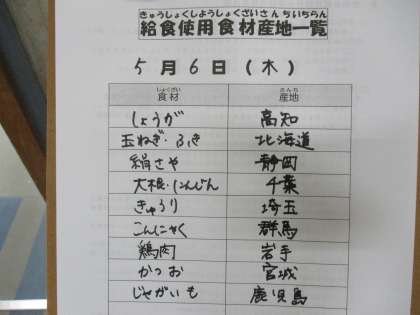 きゅうしょくしようしょくざいさんちいちらん
給食使用食材産地一覧
5月6日(木)
しょくざい さんち
食材 産地
しょうが 高知
玉ねぎ・ふき 北海道
絹さや 静岡
大根・にんじん 千葉
きゅうり 埼玉
こんにゃく 群馬
鶏肉 岩手
かつお 宮城
じゃがいも 鹿児島